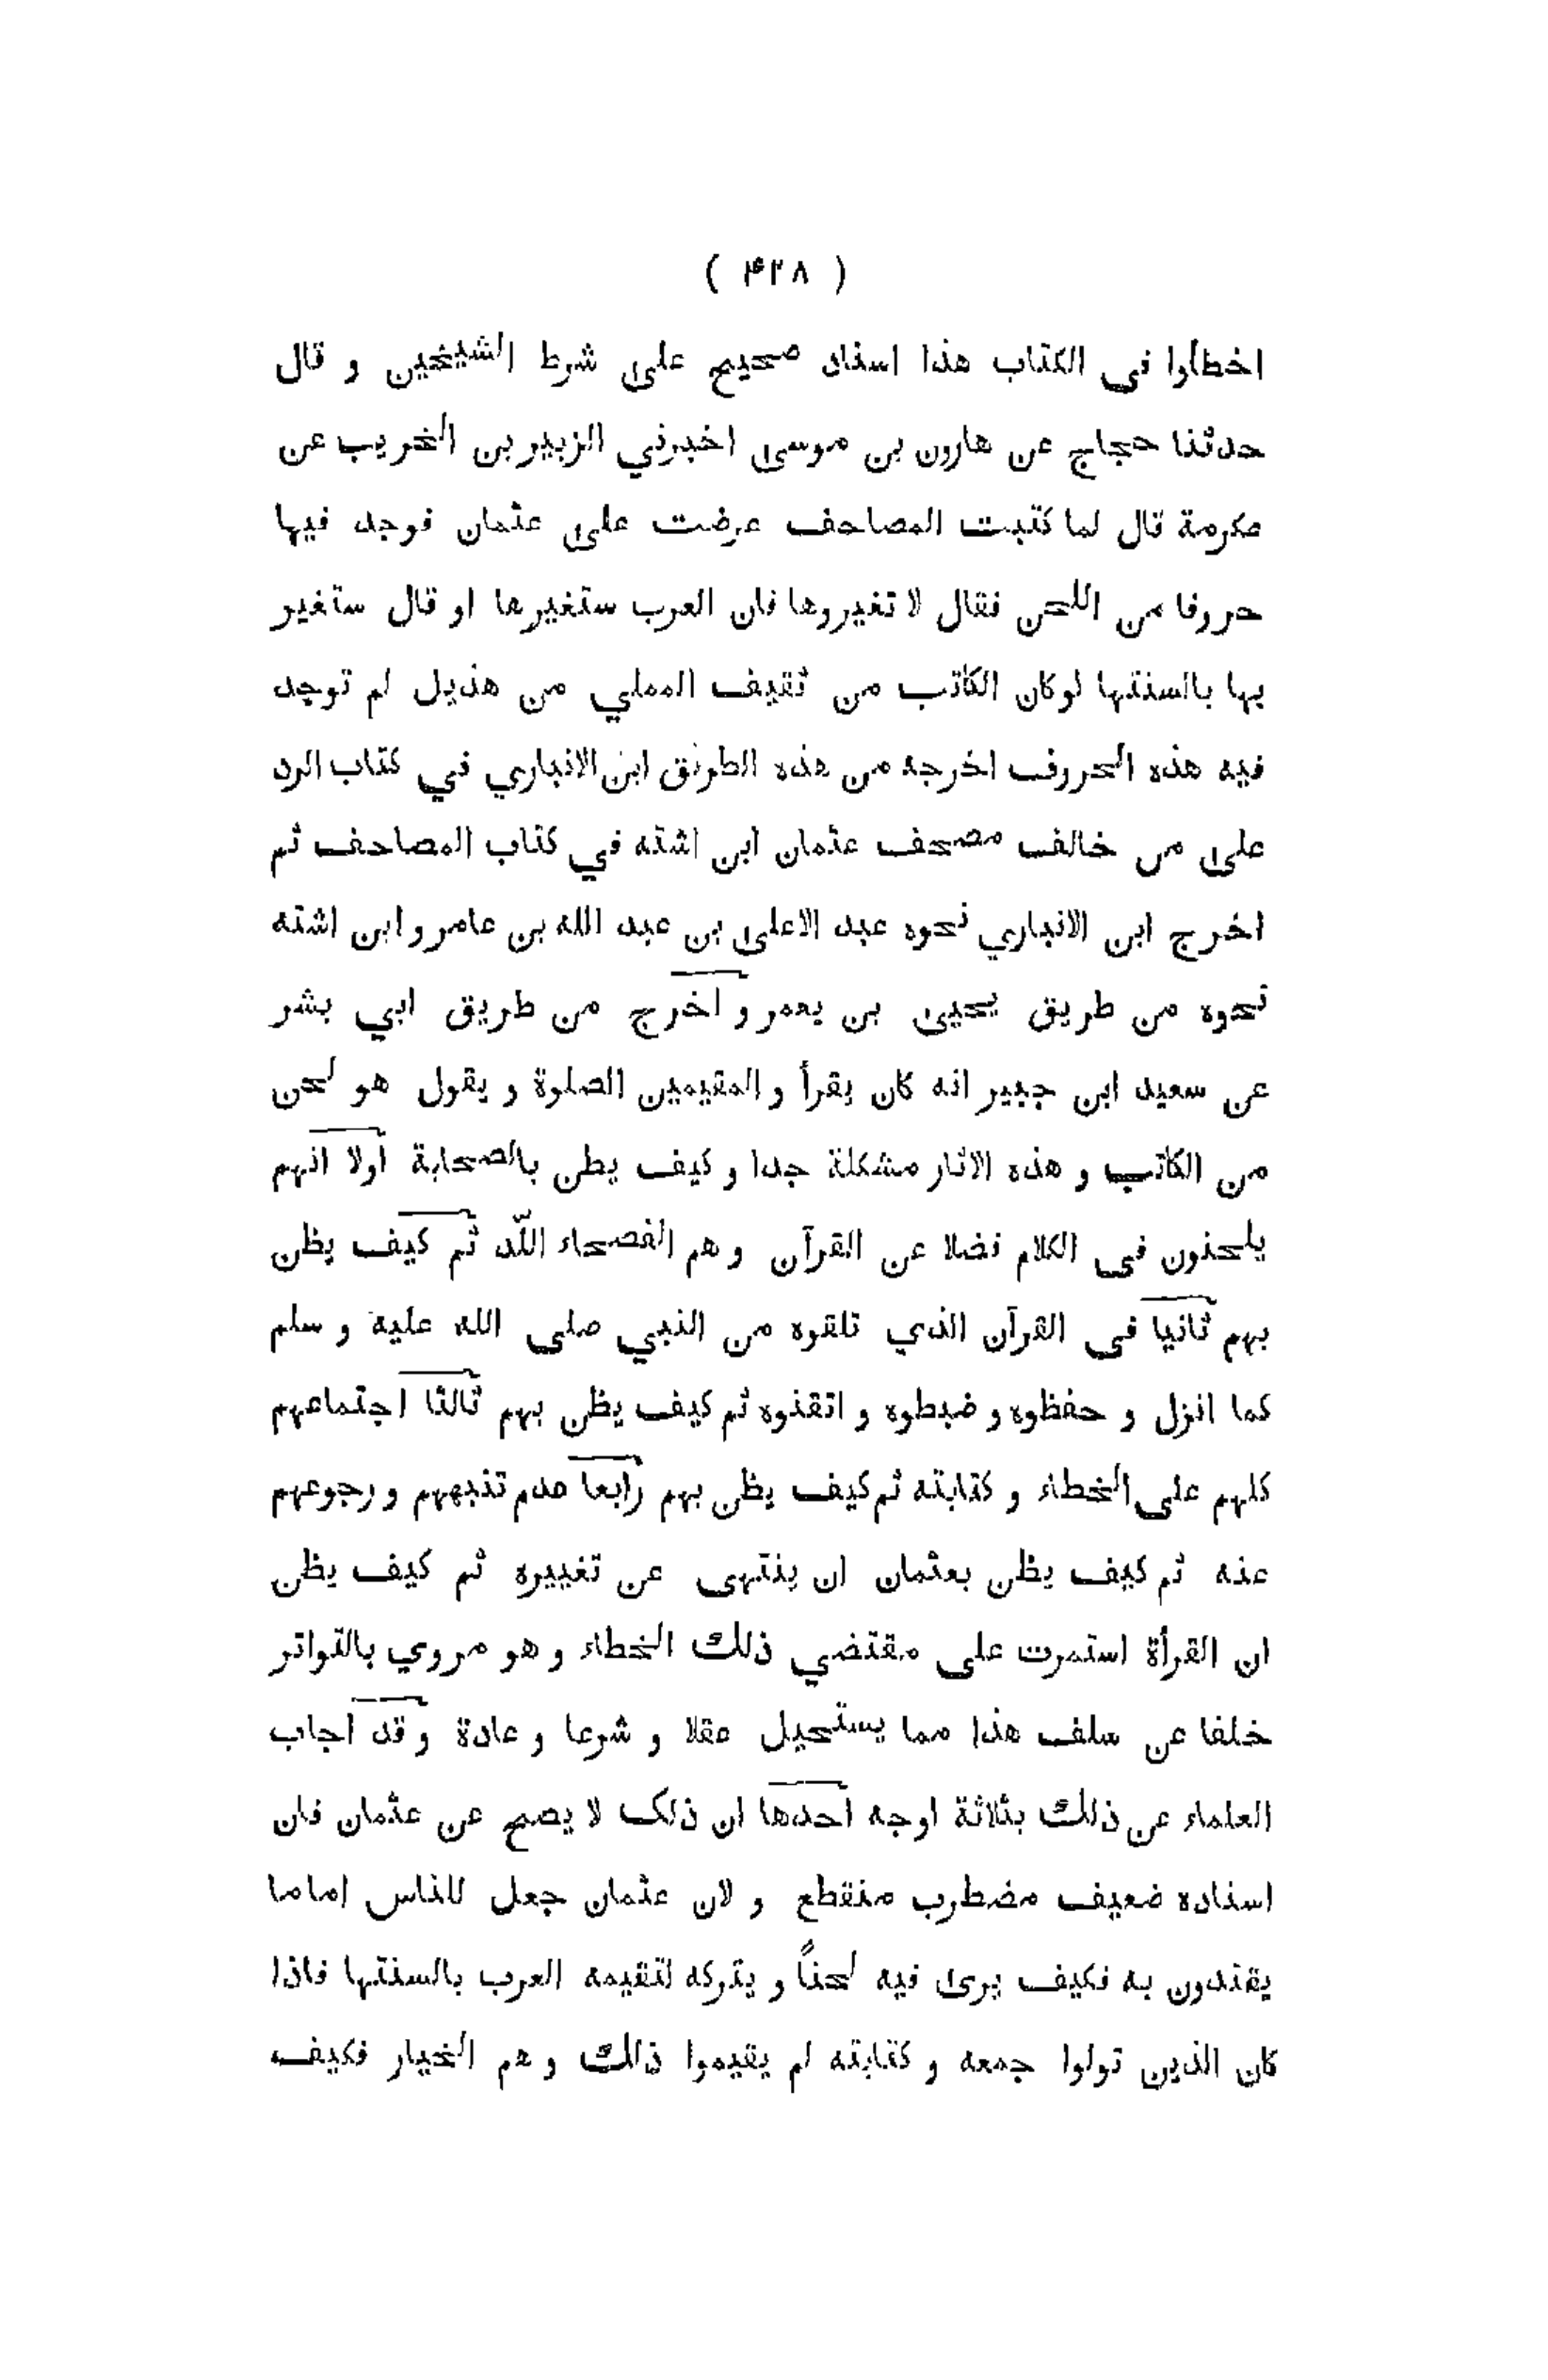 ( ۴۲۸ )
اخطأوا فى الكتاب هذا اسناد صحيح على شرط الشيخين و قال
حدثنا حجاج عن هارون بن موسى اخبرني الزبير بن الخريب عن
عكرمة قال لما كتبت المصاحف عرضت على عثمان فوجد فيها
حروفا من اللحن فقال لا تغيروها فان العرب ستغيرها او قال ستغير
بها بالسنتها لوكان الكاتب من ثقيف المملي من هذيل لم توجد
فيه هذه الحروف اخرجه من هذه الطريق ابن الانباري في كتاب الرد
على من خالف مصحف عثمان ابن اشته في كتاب المصاحف ثم
اخرج ابن الانباري نحوه عبد الاعلى بن عبد الله بن عامر و ابن اشته
نحوه من طريق يحيى بن يعمر و اخرج من طريق ابي بشر
عن سعيد ابن جبير انه كان يقرأ و المقيمين الصلوة و يقول هو لحن
من الكاتب و هذه الاثار مشكلة جدا و كيف يطن بالصحابة اولا انهم
يلحنون فى الكلام فضلا عن القرآن و هم الفصحاء اللّد ثم كيف يظن
بهم ثانيا فى القرآن الذي تلقوه من النبي صلى الله عليه و سلم
كما انزل و حفظوه و ضبطوه و اتقنوه ثم كيف يظن بهم ثالثا اجتماعهم
كلهم على الخطاء و كتابته ثم كيف يظن بهم رابعا عدم تنبههم و رجوعهم
عنه ثم كيف يظن بعثمان ان ينتهى عن تغييره ثم كيف يظن
ان القرأة استمرت على مقتضي ذلك الخطاء و هو مروي بالتواتر
خلفا عن سلف هذا مما يستحيل عقلا و شرعا و عادة و قد اجاب
العلماء عن ذلك بثلاثة اوجه احدها ان ذلک لا يصح عن عثمان فان
اسناده ضعيف مضطرب منقطع و لان عثمان جعل للناس اماما
يقتدون به فكيف يرى فيه لحناً و يتركه لتقيمه العرب بالسنتها فاذا
كان الذين تولوا جمعه و كتابته لم يقيموا ذلك و هم الخيار فكيف